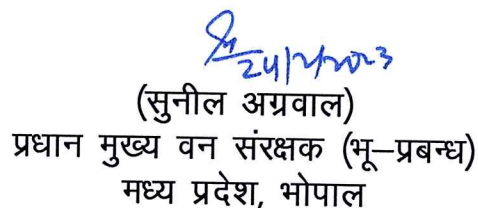 24/2/2023
(सुनील अग्रवाल)
प्रधान मुख्य वन संरक्षक (भू–प्रबन्ध)
मध्य प्रदेश, भोपाल